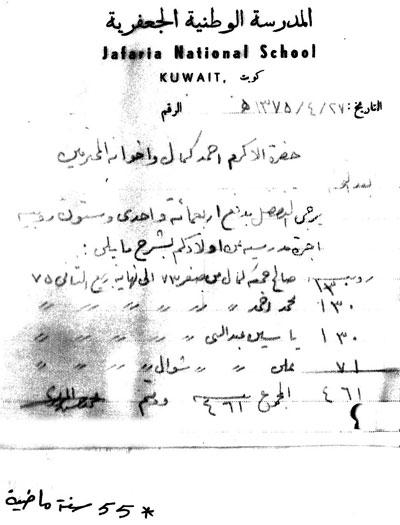 المدرسة الوطنية الجعفرية
Jafaria National School
KUWAIT, كويت
التاريخ: ٢٧/٤/١٣٧٥ هـ الرقم
حضرة الاكرم احمد كمال واخوانه المحترمين
بعد التحية
يرجى التفضل بدفع اربعمائة واحدى وستون روبية
اجرة مدرسية عن اولادكم بشرح ما يلي :
روبية
١٣٠ صالح كمال من صفر ٧٣ الى نهاية ربيع الثاني ٧٥
١٣٠ محمد احمد " " " " " "
١٣٠ ياسين عبدالنبي " " " " "
٧١ علي " " شوال " " "
٤٦١ المجموع ٤٦١ ودمتم
* 55 سنة ماضية